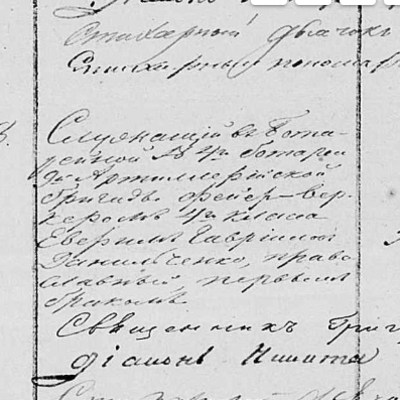 Стихарный дьячокъ
Стихарный пономар
Служащій въ бата-
рейной № 4й батареи
Артиллерійской
бригады фейер-вер-
керомъ 4го класса
Гавріиловъ
Данильченко, право
славный, первымъ
бракомъ.
Священникъ Григ
діаконъ Никита